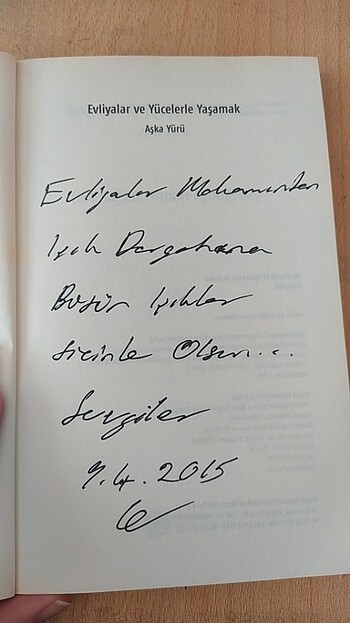 Evliyalar ve Yücelerle Yaşamak
Aşka Yürü
Evliyalar Makamından
Işık Dergahına
Bütün Işıklar
Sizinle Olsun...
Sevgiler
9.4.2015